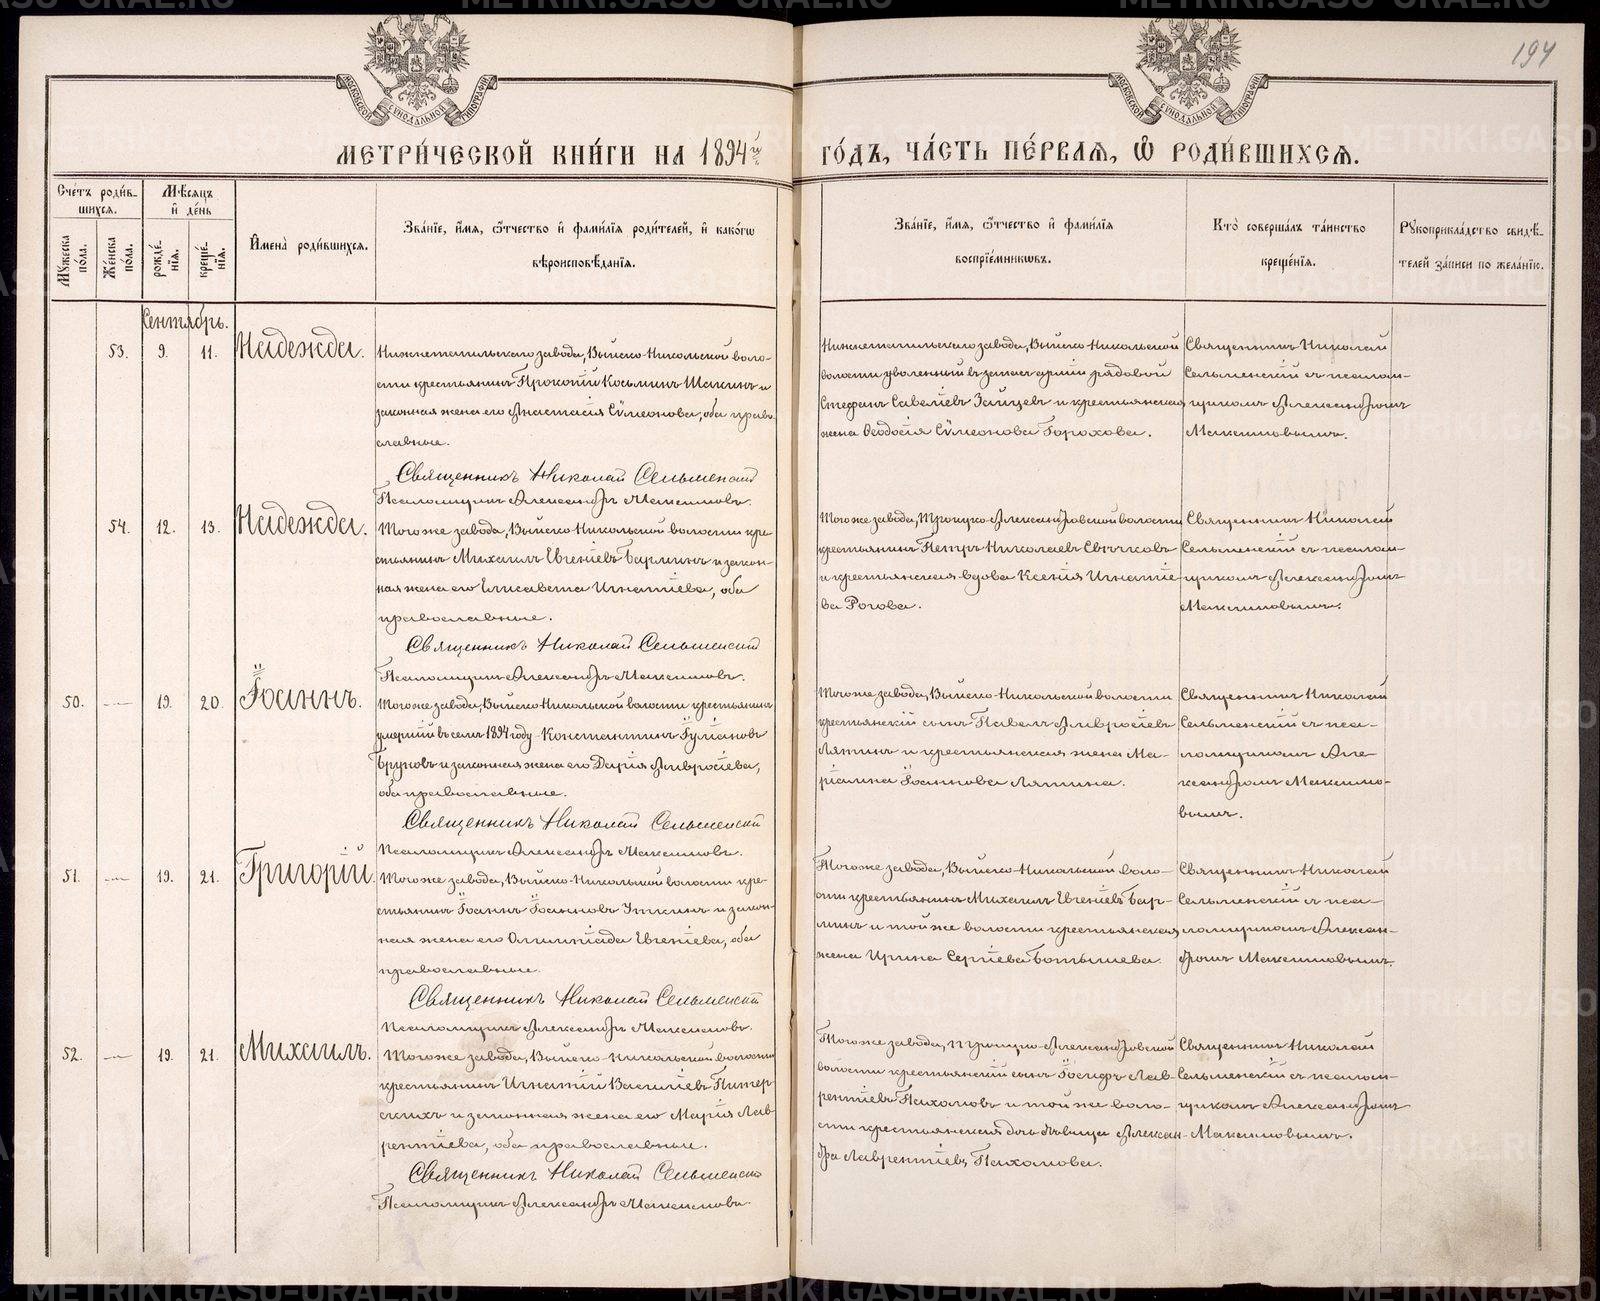 194
МЕТРИ́ЧЕСКОЙ КНИ́ГИ НА 1894й
ГО́ДЪ, ЧА́СТЬ ПЕ́РВАѦ, Ѡ РОДИ́ВШИХСѦ.
Сче́тъ роди́в-
шихсѧ.
Мѣ́сѧцъ
и҆ де́нь
Мꙋ́жеска
по́ла.
Же́нска
по́ла.
рожде́-
нїѧ.
креще́-
нїѧ.
И҆мена̀ роди́вшихсѧ.
Зва́нїе, и҆́мѧ, ѻ҆́тчество и҆ фами́лїѧ роди́телей, и҆ како́гѡ
вѣроисповѣ́данїѧ.
Зва́нїе, и҆́мѧ, ѻ҆́тчество и҆ фами́лїѧ
воспрїе́мникѡвъ.
Кто̀ соверша́лъ та́инство
креще́нїѧ.
Рꙋкоприкла́дство свидѣ́-
телей за́писи по жела́нїю.
Сентябрь.
53. 9. 11. Надежда.
Нижнетагильскаго завода, Выйско-Никольской воло-
сти крестьянинъ Прокопій Косьминъ Шакинъ и
законная жена его Анастасія Сѵмеонова, оба право-
славные.
Священникъ Николай Сельменскій
Псаломщикъ Александръ Максимовъ.
Нижнетагильскаго завода, Выйско-Никольской
волости уволенный въ запасъ арміи рядовой
Стефанъ Савеліевъ Зайцевъ и крестьянская
жена Ѳеодосія Сѵмеонова Горохова.
Священникъ Николай
Сельменскій съ псалом-
щикомъ Александромъ
Максимовымъ.
54. 12. 13. Надежда.
Того же завода, Выйско-Никольской волости кре-
стьянинъ Михаилъ Евгеніевъ Барминъ и закон-
ная жена его Елисавета Игнатіева, оба
православные.
Священникъ Николай Сельменскій
Псаломщикъ Александръ Максимовъ.
Того же завода, Троицко-Александровской волости
крестьянинъ Петръ Николаевъ Свѣчковъ
и крестьянская вдова Ксенія Игнатіе-
ва Рогова.
Священникъ Николай
Сельменскій съ псалом-
щикомъ Александромъ
Максимовымъ.
50. — 19. 20. Іоаннъ.
Того же завода, Выйско-Никольской волости крестьянинъ
умершій въ семъ 1894 году - Константинъ Іуліановъ
Бруковъ и законная жена его Дарія Амвросіева,
оба православные.
Священникъ Николай Сельменскій
Псаломщикъ Александръ Максимовъ.
Того же завода, Выйско-Никольской волости
крестьянскій сынъ Павелъ Амвросіевъ
Ляпинъ и крестьянская жена Ма-
ріамна Іоаннова Ляпина.
Священникъ Николай
Сельменскій съ пса-
ломщикомъ Але-
ксандромъ Максимо-
вымъ.
51. — 19. 21. Григорій.
Того же завода, Выйско-Никольской волости кре-
стьянинъ Іоаннъ Іоанновъ Уткинъ и закон-
ная жена его Олимпіада Евгеніева, оба
православные.
Священникъ Николай Сельменскій
Псаломщикъ Александръ Максимовъ.
Того же завода, Выйско-Никольской воло-
сти крестьянинъ Михаилъ Евгеніевъ Бар-
минъ и той же волости крестьянская
жена Ирина Сергіева Ботышева.
Священникъ Николай
Сельменскій съ пса-
ломщикомъ Алексан-
дромъ Максимовымъ.
52. — 19. 21. Михаилъ.
Того же завода, Выйско-Никольской волости
крестьянинъ Игнатій Василіевъ Питер-
скихъ и законная жена его Марія Лав-
рентіева, оба православные.
Священникъ Николай Сельменскій
Псаломщикъ Александръ Максимовъ.
Того же завода, Троицко-Александровской
волости крестьянскій сынъ Іосифъ Лав-
рентіевъ Пахомовъ и той же воло-
сти крестьянская дочь дѣвица Алексан-
дра Лаврентіева Пахомова.
Священникъ Николай
Сельменскій съ псалом-
щикомъ Александромъ
Максимовымъ.
METRIKI.GASO-URAL.RU